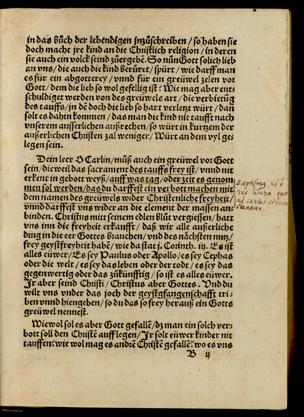 in das bůch der lebendigen inzůschreiben / so haben sie
doch macht jre kind an die Christlich religion / in deren
sie auch ein volck seind zůergebē. So nůn Gott solich lieb
an vns / die auch die kind berůret / spürt / wie darff man
es für ein abgotterey / vnnd für ein greüwel zelen vor
Gott / dem die lieb so wol gefellig ist: Wie mag aber ent-
schuldiget werden von des greüwels art / die verbietūg
des tauffs / in dē doch die lieb so hart verletzt würt / dañ
solt es dahin kommen / das man die kind nit taufft nach
vnserem ausserlichen außrechen / so würt in kurtzem der
außerlichen Christen zal weniger / Würt an dem vyl ge-
legen sein.
Dein leer O Carlin / můß auch ein greüwel vor Gott
sein / dieweil das sacrament des tauffs frey ist / vnnd nit
erkent in gehört weyß / auff was tag / oder zeit es genom
men sol werden / das du darffest ein verbott machen mit
dem namen des greüwels wider Christenliche freyheit /
vnnd darffest vns wider an die element der massen an-
binden. Christus mit seinem edlen Blůt vergiessen / hatt
vns inn die freyheit erkaufft / daß wir alle außerliche
ding in die eer Gottes brauchen / vnd des nächsten nutz /
frey geystfreyheit habē / wie da stat j. Corinth. iij. Es ist
alles eüwer / Es sey Paulus oder Apollo / es sey Cephas
oder die welt / es sey das leben oder der todt / es sey das
gegenwertig oder das zůkünfftig / so ist es alles eüwer.
Jr aber send Christi / Christus aber Gottes. Vnd du
wilt vns vnder das joch der geystgfangenschafft tri-
ben vnnd hiengeben / so du das so frey herauß ein Gotts
greüwel nennest.
Wiewol sol es aber Gott gefallē / dz man ein solch ver-
bott soll den Christē aufflegen / Jr solt eüwer kinder nit
tauffen: wie wol mag es andrē Christē gefallē: wo es vns
B ij